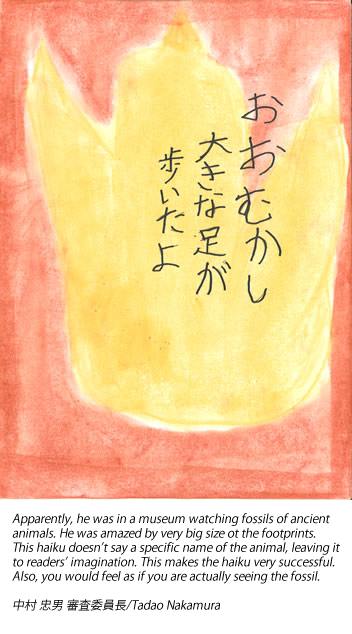 おおむかし
大きな足が
歩いたよ
Apparently, he was in a museum watching fossils of ancient
animals. He was amazed by very big size ot the footprints.
This haiku doesn't say a specific name of the animal, leaving it
to readers' imagination. This makes the haiku very successful.
Also, you would feel as if you are actually seeing the fossil.
中村 忠男 審査委員長/Tadao Nakamura